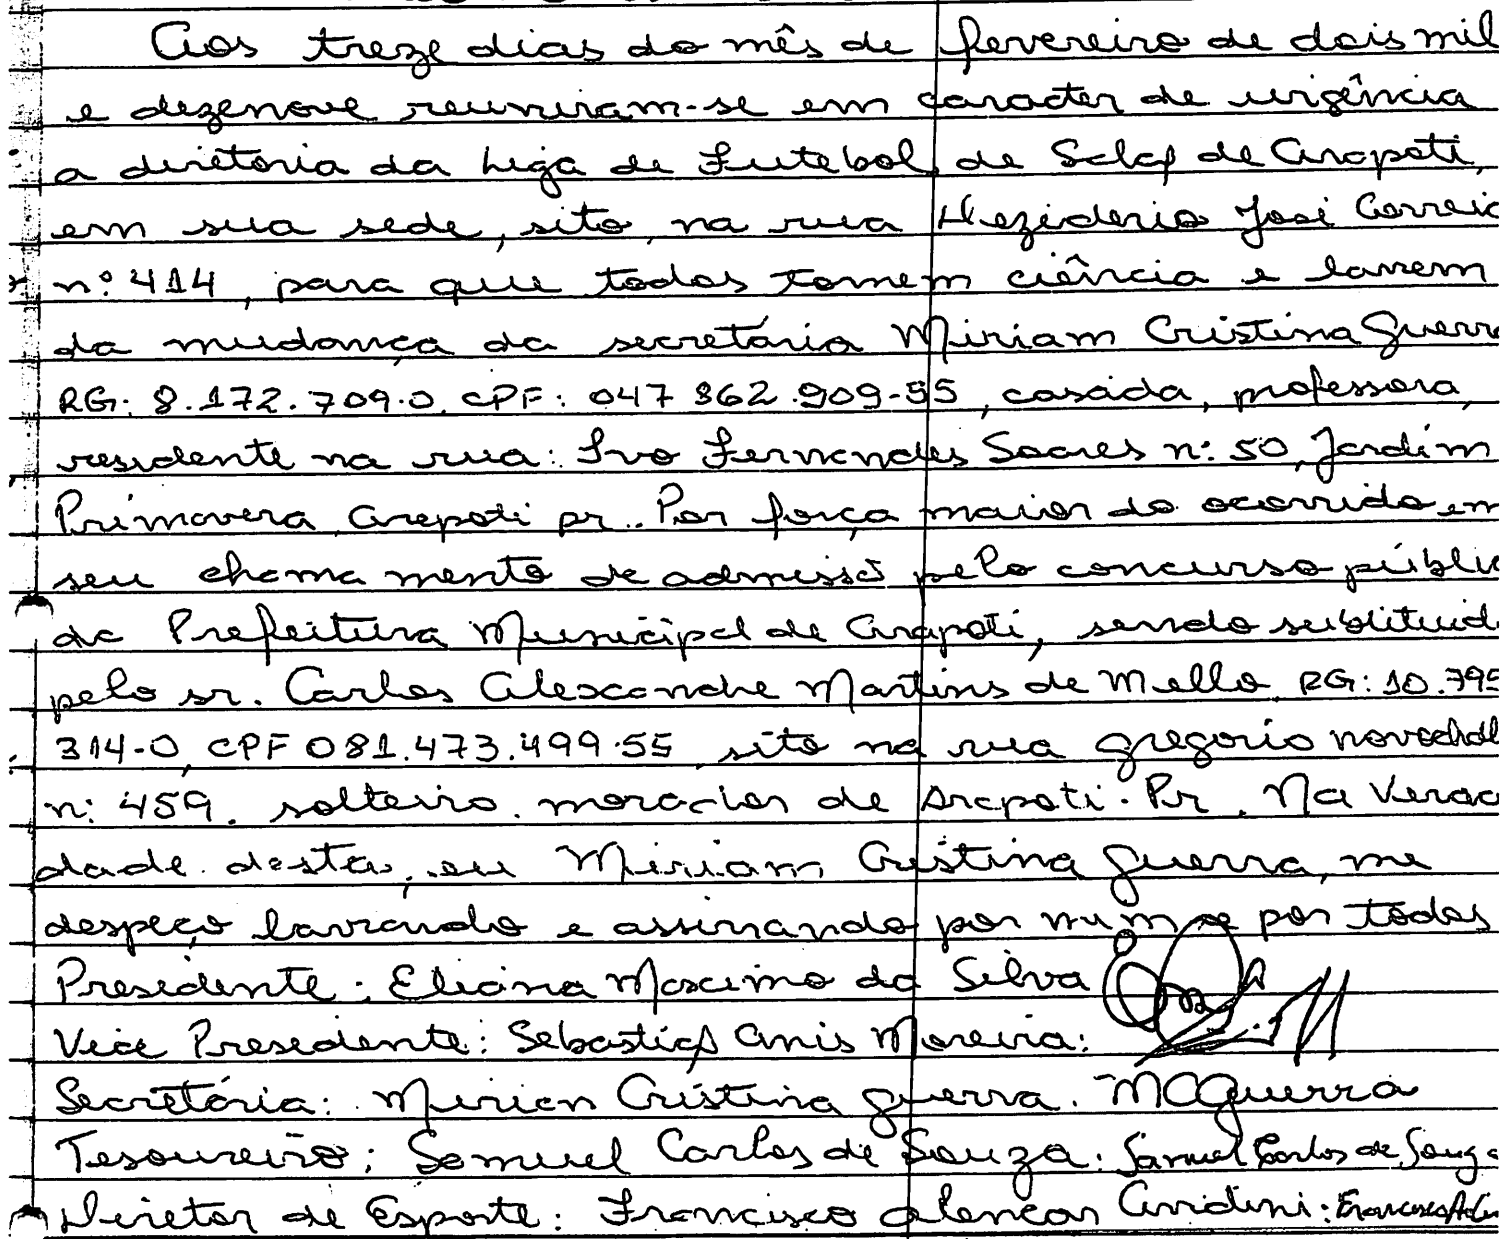 Aos treze dias do mês de fevereiro de dois mil
e dezenove reuniram-se em caracter de urgência
a diretoria da Liga de Futebol de Salão de Arapoti,
em sua sede, sito, na rua Hezideria José Correia
nº 414, para que todos tomem ciência e lavrem
da mudança da secretária Miriam Cristina Guerra
RG: 8.172.709.0, CPF: 047 862.909-55, casada, professora,
residente na rua: Ivo Fernandes Soares n: 50, Jardim
Primavera, Arapoti pr. Por força maior do ocorrido em
seu chamamento de admissã pelo concurso públic
da Prefeitura Municipal de Arapoti, sendo subtituid
pelo sr. Carlos Alexandre Martins de Mello, RG: 10.795
314-0, CPF 081.473.499.55, sito na rua gregorio
n: 459, solteiro, morador de Arapoti. Pr. Na Verac
dade desta, eu Miriam Cristina Guerra, me
despeço lavrando e assinando por mim e por todos
Presidente: Eliana Maximo da Silva
Vice Presidente: Sebastião Anis Moreira:
Secretária: Mirian Cristina Guerra. MCGuerra
Tesoureiro: Samuel Carlos de Souza: Samuel Carlos de Souza
Diretor de Esporte: Francisco Alencar Andini: